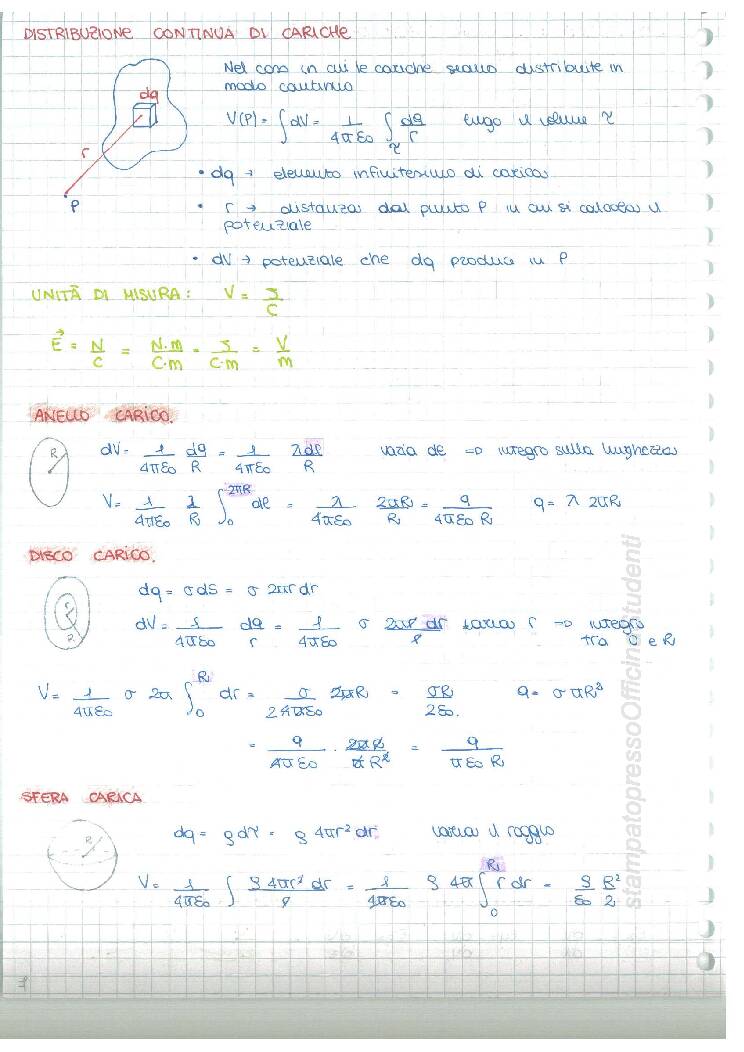 DISTRIBUZIONE CONTINUA DI CARICHE
Nel caso in cui le cariche siano distribuite in
modo continuo
dq
V(P) = ∫dV = 1/4πε₀ ∫_τ dq/r lungo il volume τ
r
P
• dq → elemento infinitesimo di carica
• r → distanza dal punto P in cui si calcola il
potenziale
• dV → potenziale che dq produce in P
UNITÀ DI MISURA: V = J/C
E⃗ = N/C = N·m/C·m = J/C·m = V/m
ANELLO CARICO.
R
dV = 1/4πε₀ dq/R = 1/4πε₀ λdl/R varia dl ⇒ integro sulla lunghezza
V = 1/4πε₀ λ/R ∫₀^2πR dl = λ/4πε₀ 2πR/R = q/4πε₀R q = λ 2πR
DISCO CARICO.
r
R
dq = σdS = σ 2πr dr
dV = 1/4πε₀ dq/r = 1/4πε₀ σ 2πr dr/r varia r ⇒ integro
tra 0 e R
V = 1/4πε₀ σ 2π ∫₀^R dr = σ/24πε₀ 2πR = σR/2ε₀. q = σπR²
= q/4πε₀ · 2πR/πR² = q/πε₀R
SFERA CARICA
R
dq = ρdτ = ρ 4πr² dr varia il raggio
V = 1/4πε₀ ∫ ρ4πr² dr/r = 1/4πε₀ ρ 4π ∫₀^R r dr = ρ/ε₀ R²/2
stampatopressoOfficinaStudenti